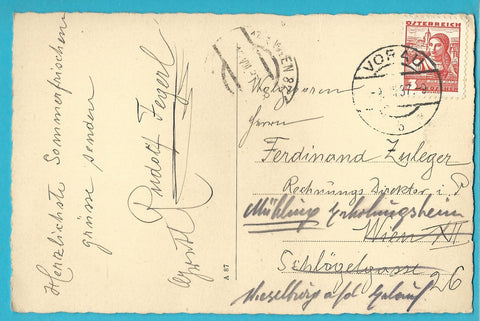 Herzlichste Sommerfrischen
grüsse senden
Rudolf
ÖSTERREICH
VORAU
37
WIEN 82
Wolgeboren
Herrn
Ferdinand Zyleger
Rechnungs Direktor i. P
Mühling Erholungsheim
Wien XII
Schlögelgasse 26
Wieselburg a/d Erlauf
A 87